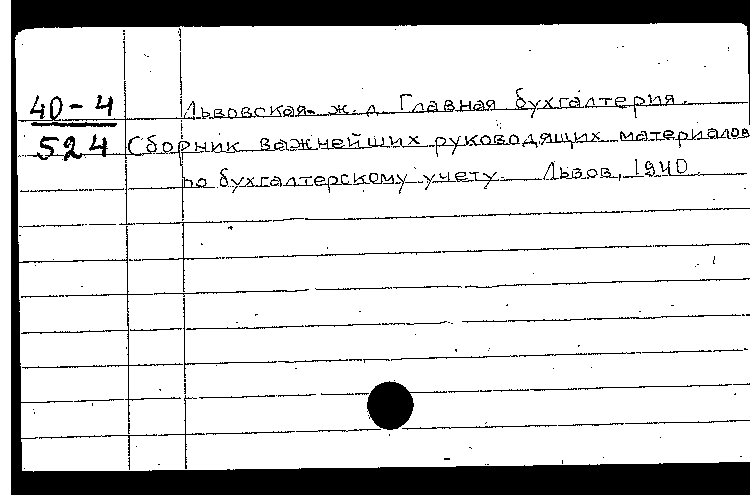 40-4 Львовская ж. д. Главная бухгалтерия.
524 Сборник важнейших руководящих материалов
по бухгалтерскому учету. Львов, 1940